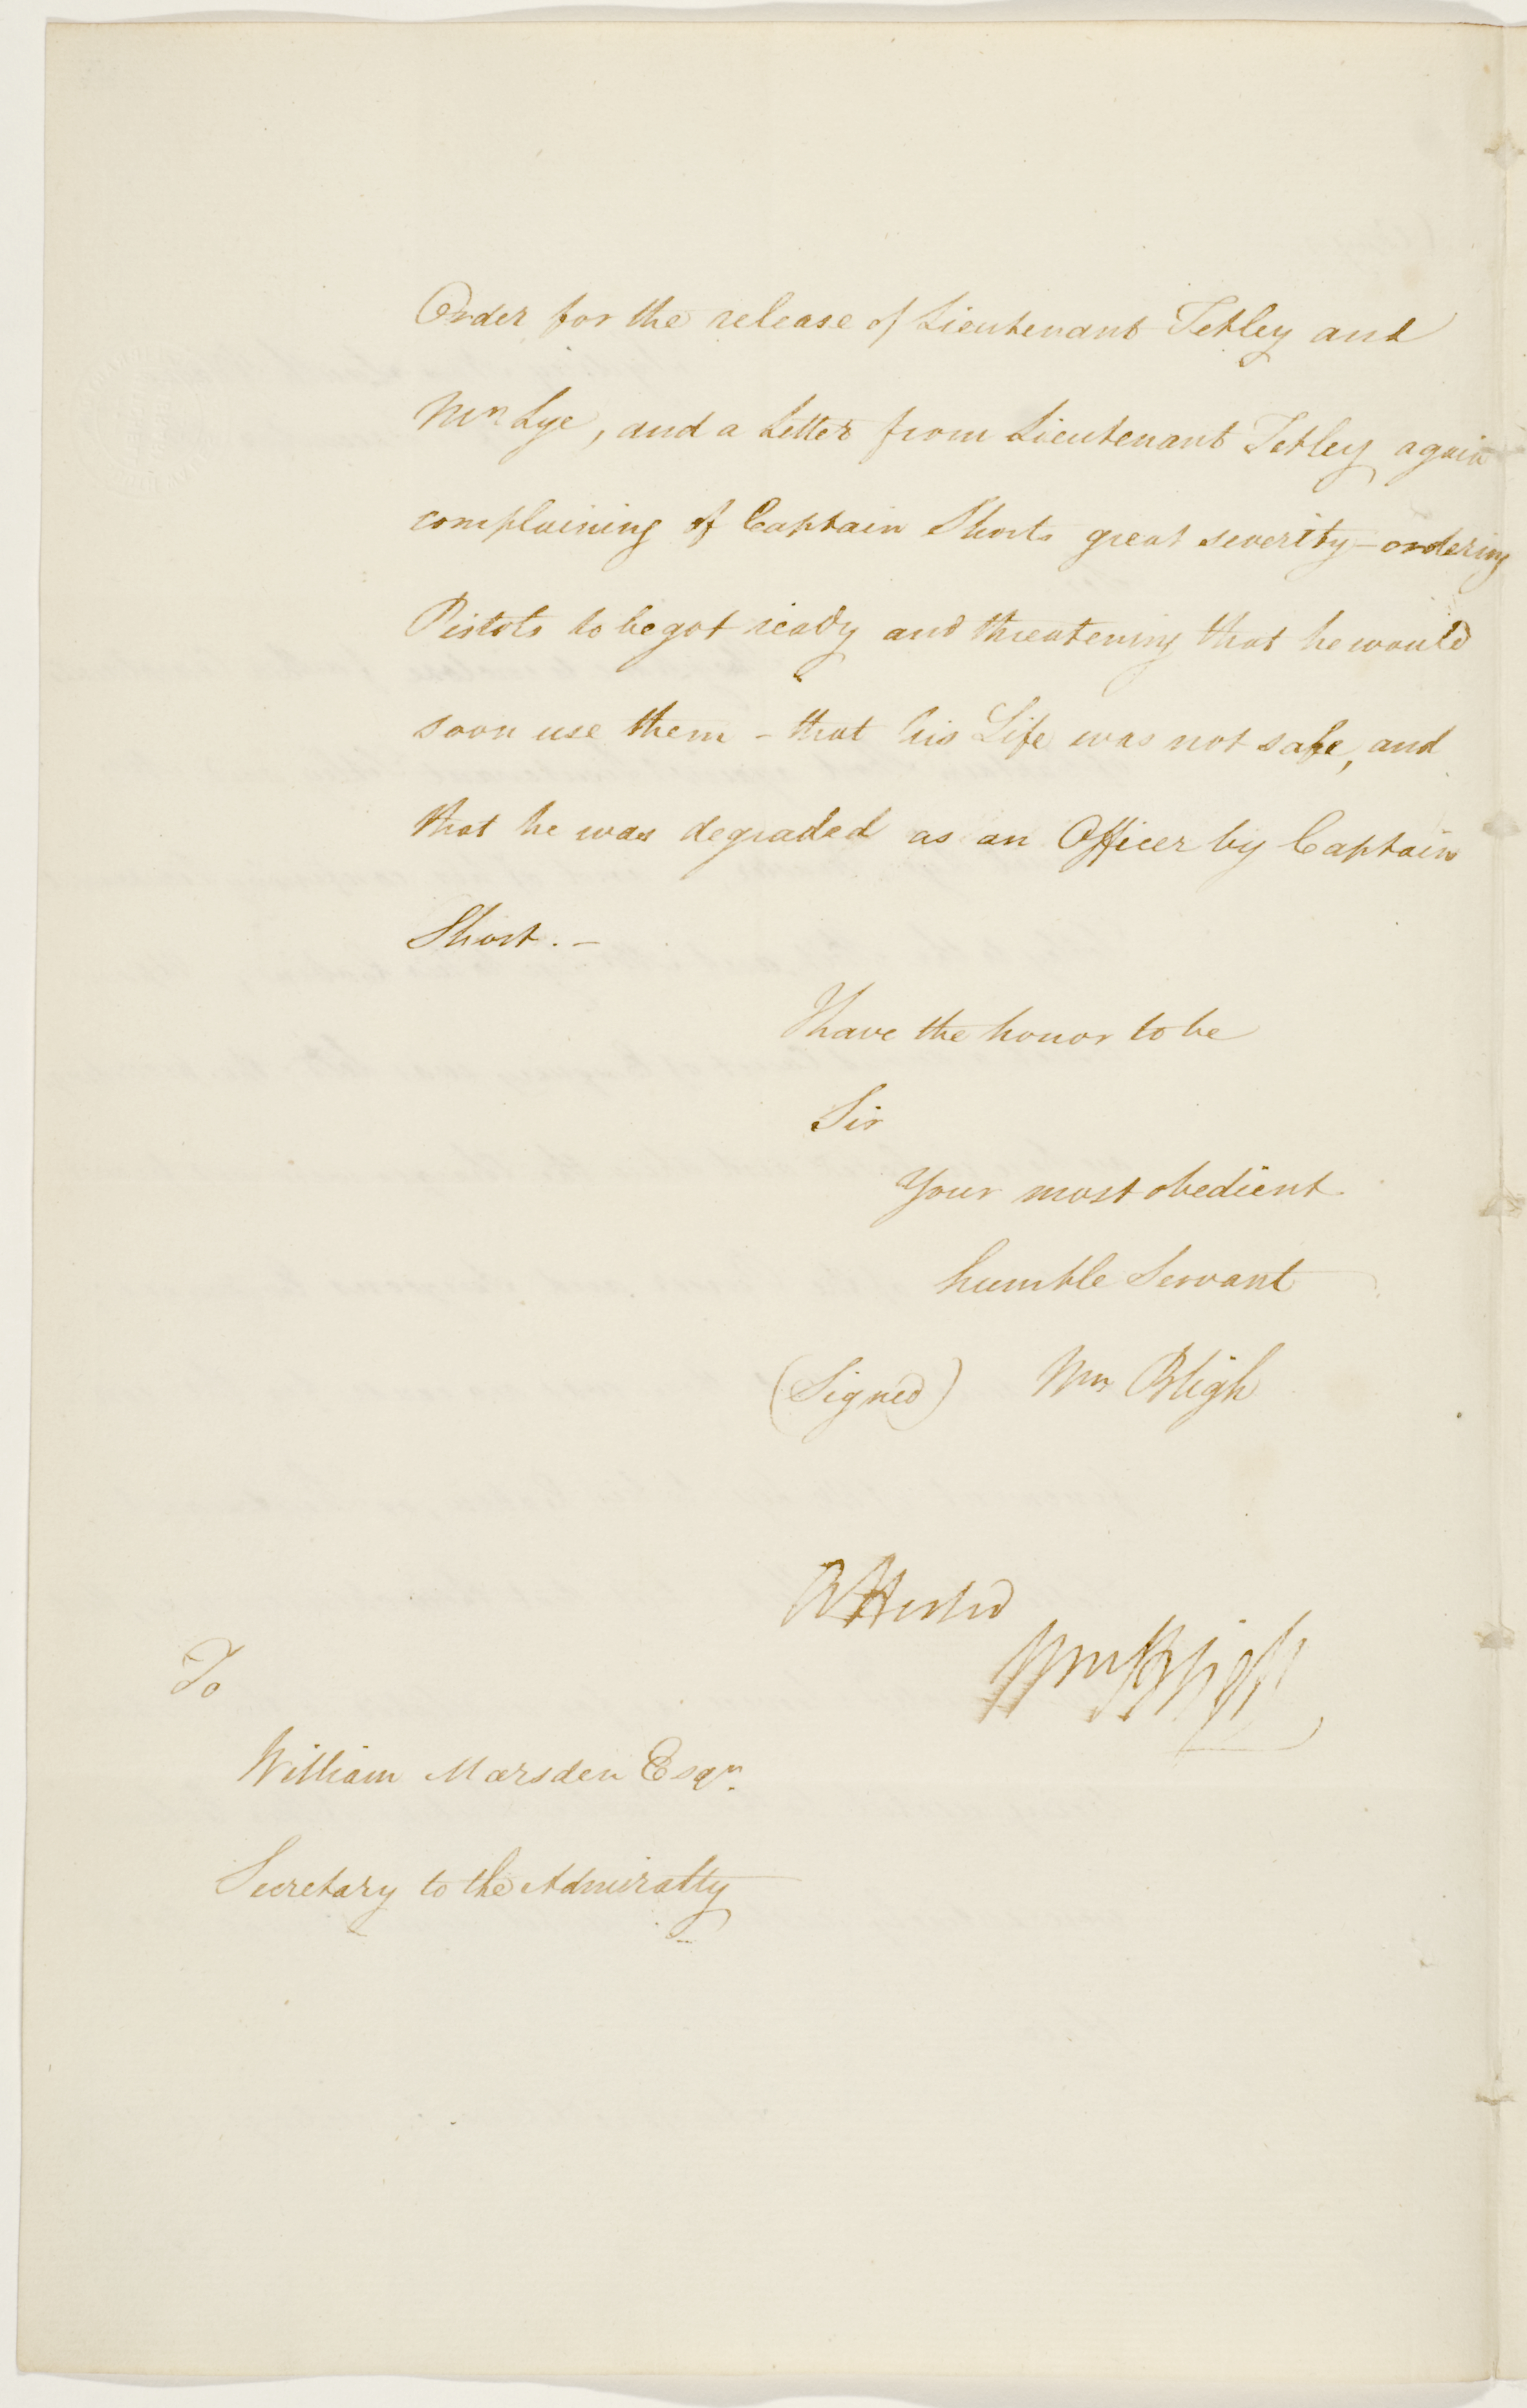 Order for the release of Lieutenant Tetley and
Mr Lye, and a Letter from Lieutenant Tetley again
complaining of Captain Shorts great severity – ordering
Pistols to be got ready and threatening that he would
soon use them – that his Life was not safe, and
that he was degraded as an Officer by Captain
Short. –
I have the honor to be
Sir
Your most obedient
humble Servant
(Signed) Wm Bligh
Attested
Wm Bligh
To
William Marsden Esqr.
Secretary to the Admiralty